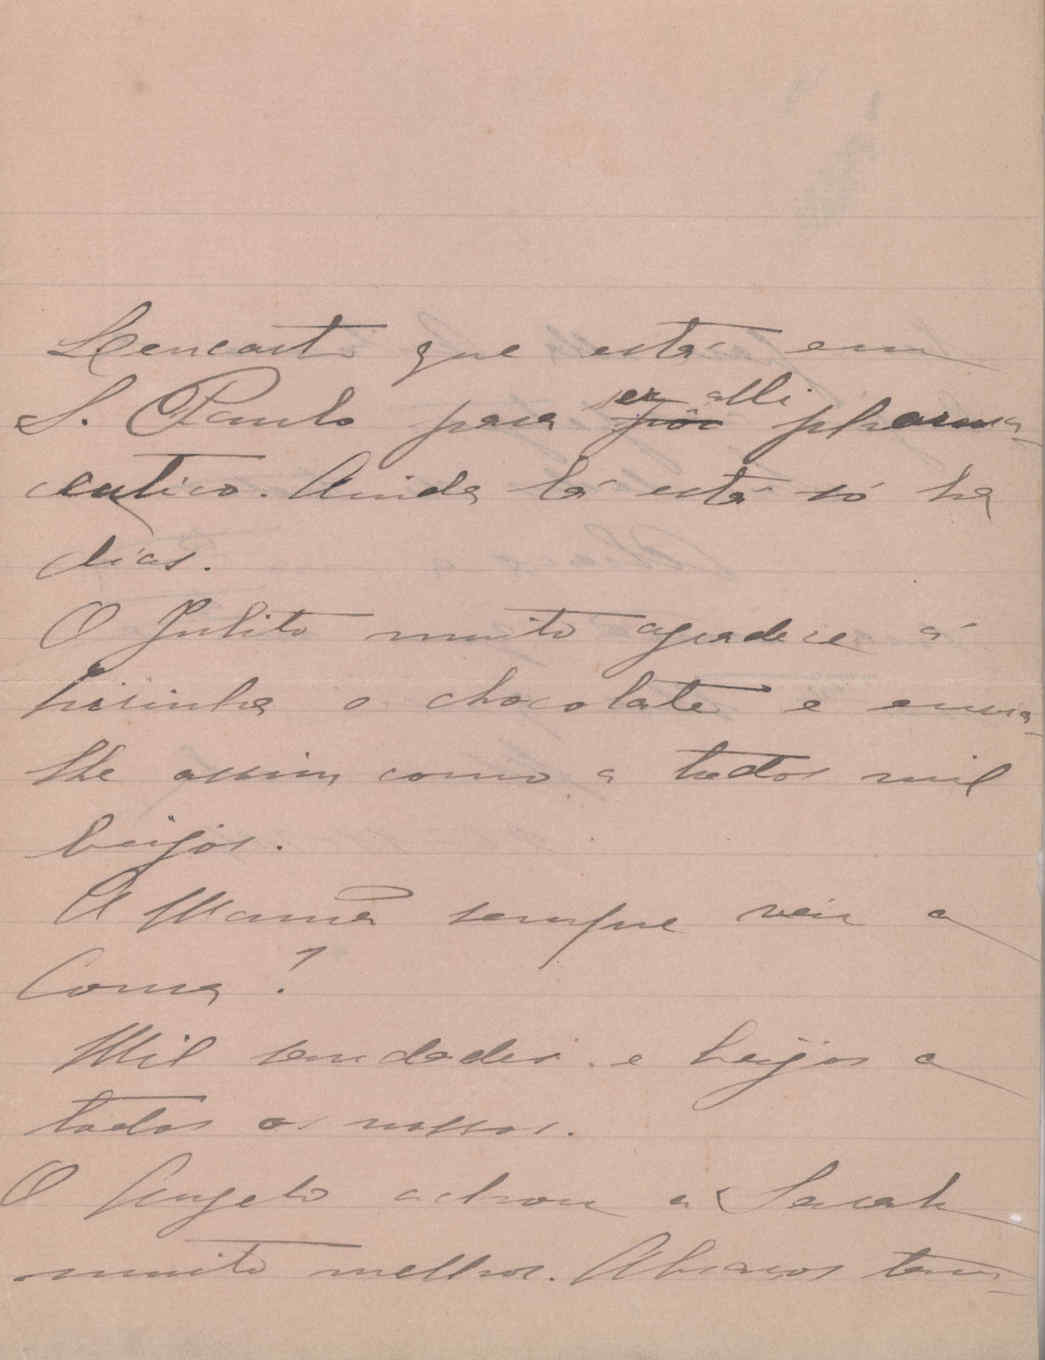 Lencastr que está em
S. Paulo para ser alli pharma-
ceutico. Ainda lá está só ha
dias.
O Julito muito agradece á
Lisinha o chocolate e envia-
lhe assim como a todos mil
beijos.
A Mamã sempre veiu a
Coma?
Mil saudades e beijos a
todos os nossos.
O Angelo achou a Sarah
muito melhor. Abraços ter-